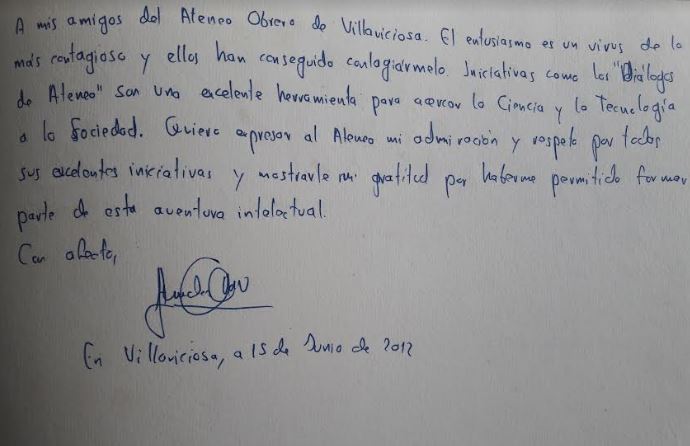 A mis amigos del Ateneo Obrero de Villaviciosa. El entusiasmo es un virus de lo
más contagioso y ellos han conseguido contagiármelo. Iniciativas como los "Diálogos
de Ateneo" son una excelente herramienta para acercar la Ciencia y la Tecnología
a la Sociedad. Quiero expresar al Ateneo mi admiración y respeto por todas
sus excelentes iniciativas y mostrarle mi gratitud por haberme permitido formar
parte de esta aventura intelectual.
Con afecto,
En Villaviciosa, a 15 de Junio de 2012